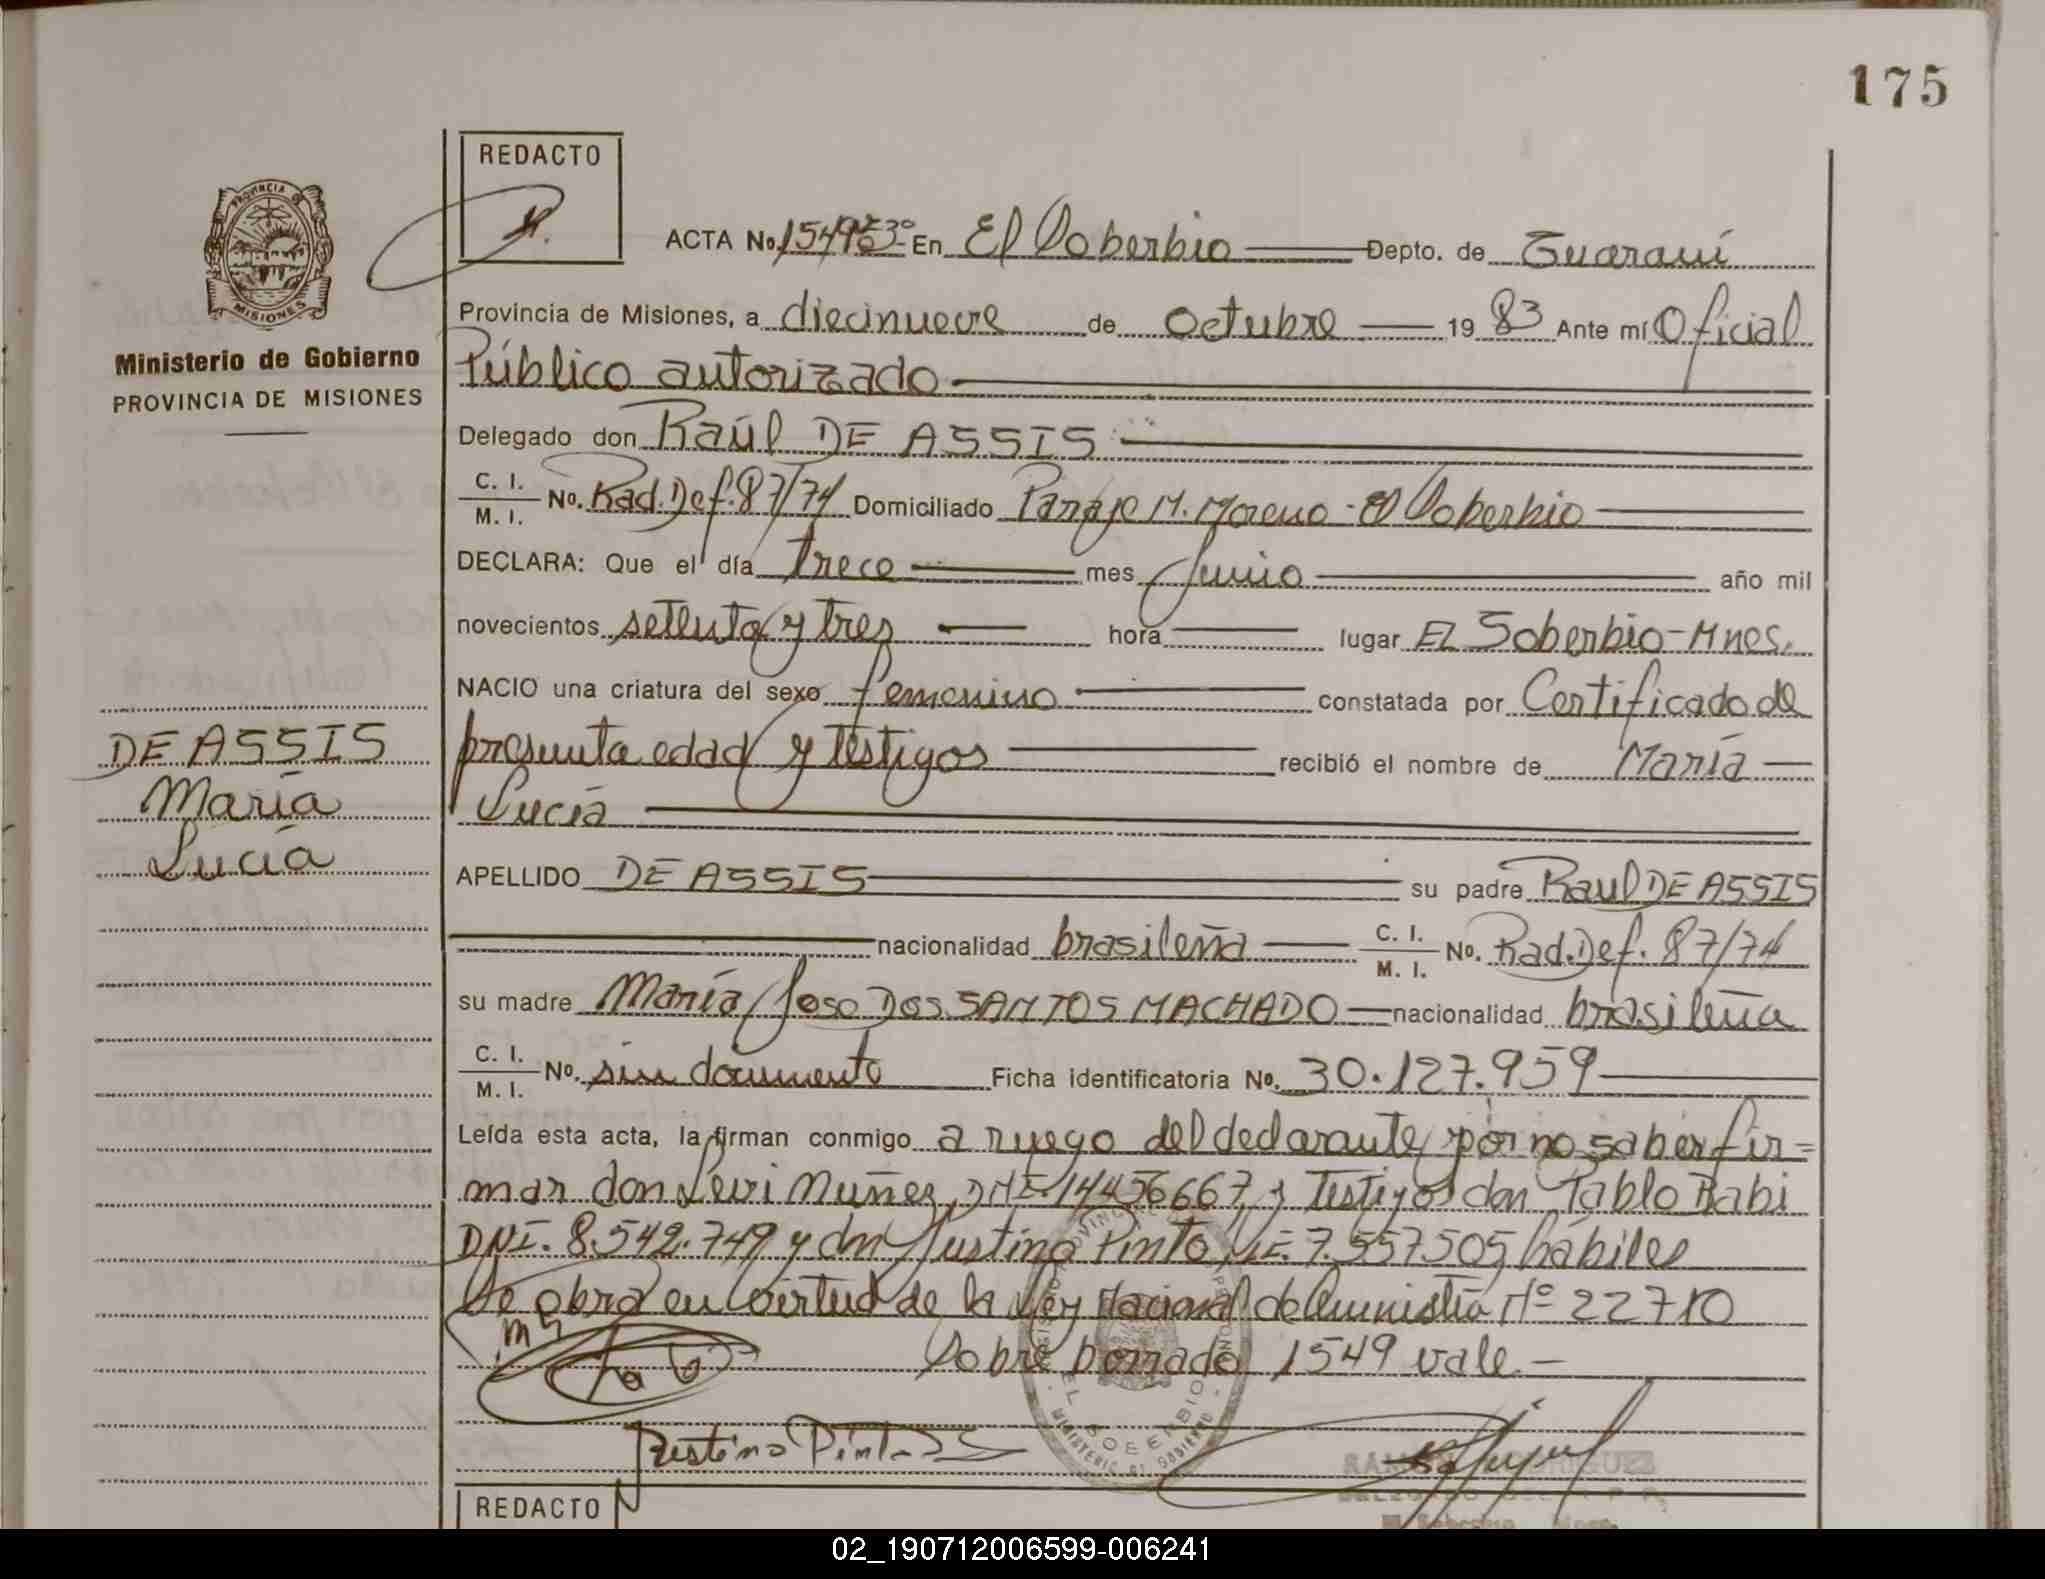 175
REDACTO
ACTA No. 1549 En El Soberbio Depto. de Guaraní
Provincia de Misiones, a diecinueve de octubre 19 83 Ante mí Oficial
Público autorizado
Delegado don Raúl DE ASSIS
C. I. / M. I. No. Rad. Def. 87/74 Domiciliado Paraje M. Moreno - El Soberbio
DECLARA: Que el día trece mes Junio año mil
novecientos setenta y tres hora lugar EL Soberbio - Mnes.
NACIO una criatura del sexo femenino constatada por Certificado de
presunta edad y testigos recibió el nombre de María
Lucía
APELLIDO DE ASSIS su padre Raul DE ASSIS
nacionalidad brasileña C. I. / M. I. No. Rad. Def. 87/74
su madre María Jose DOS SANTOS MACHADO nacionalidad brasileña
C. I. / M. I. No. sin documento Ficha identificatoria No. 30.127.959
Leída esta acta, la firman conmigo a ruego del declarante por no saber fir=
mar don Levi Muñez, DNI. 14456667, y Testigos don Pablo Rabi
DNI. 8.542.749 y don Justino Pinto, LE. 7.557.505, hábiles
Se obra en virtud de la Ley Nacional de Amnistía Nº 22710
Sobre borrado 1549 vale.-
Justino Pinto
REDACTO
PROVINCIA
MISIONES
Ministerio de Gobierno
PROVINCIA DE MISIONES
DE ASSIS
María
Lucía
EL SOBERBIO
MINISTERIO DE GOBIERNO
02_190712006599-006241